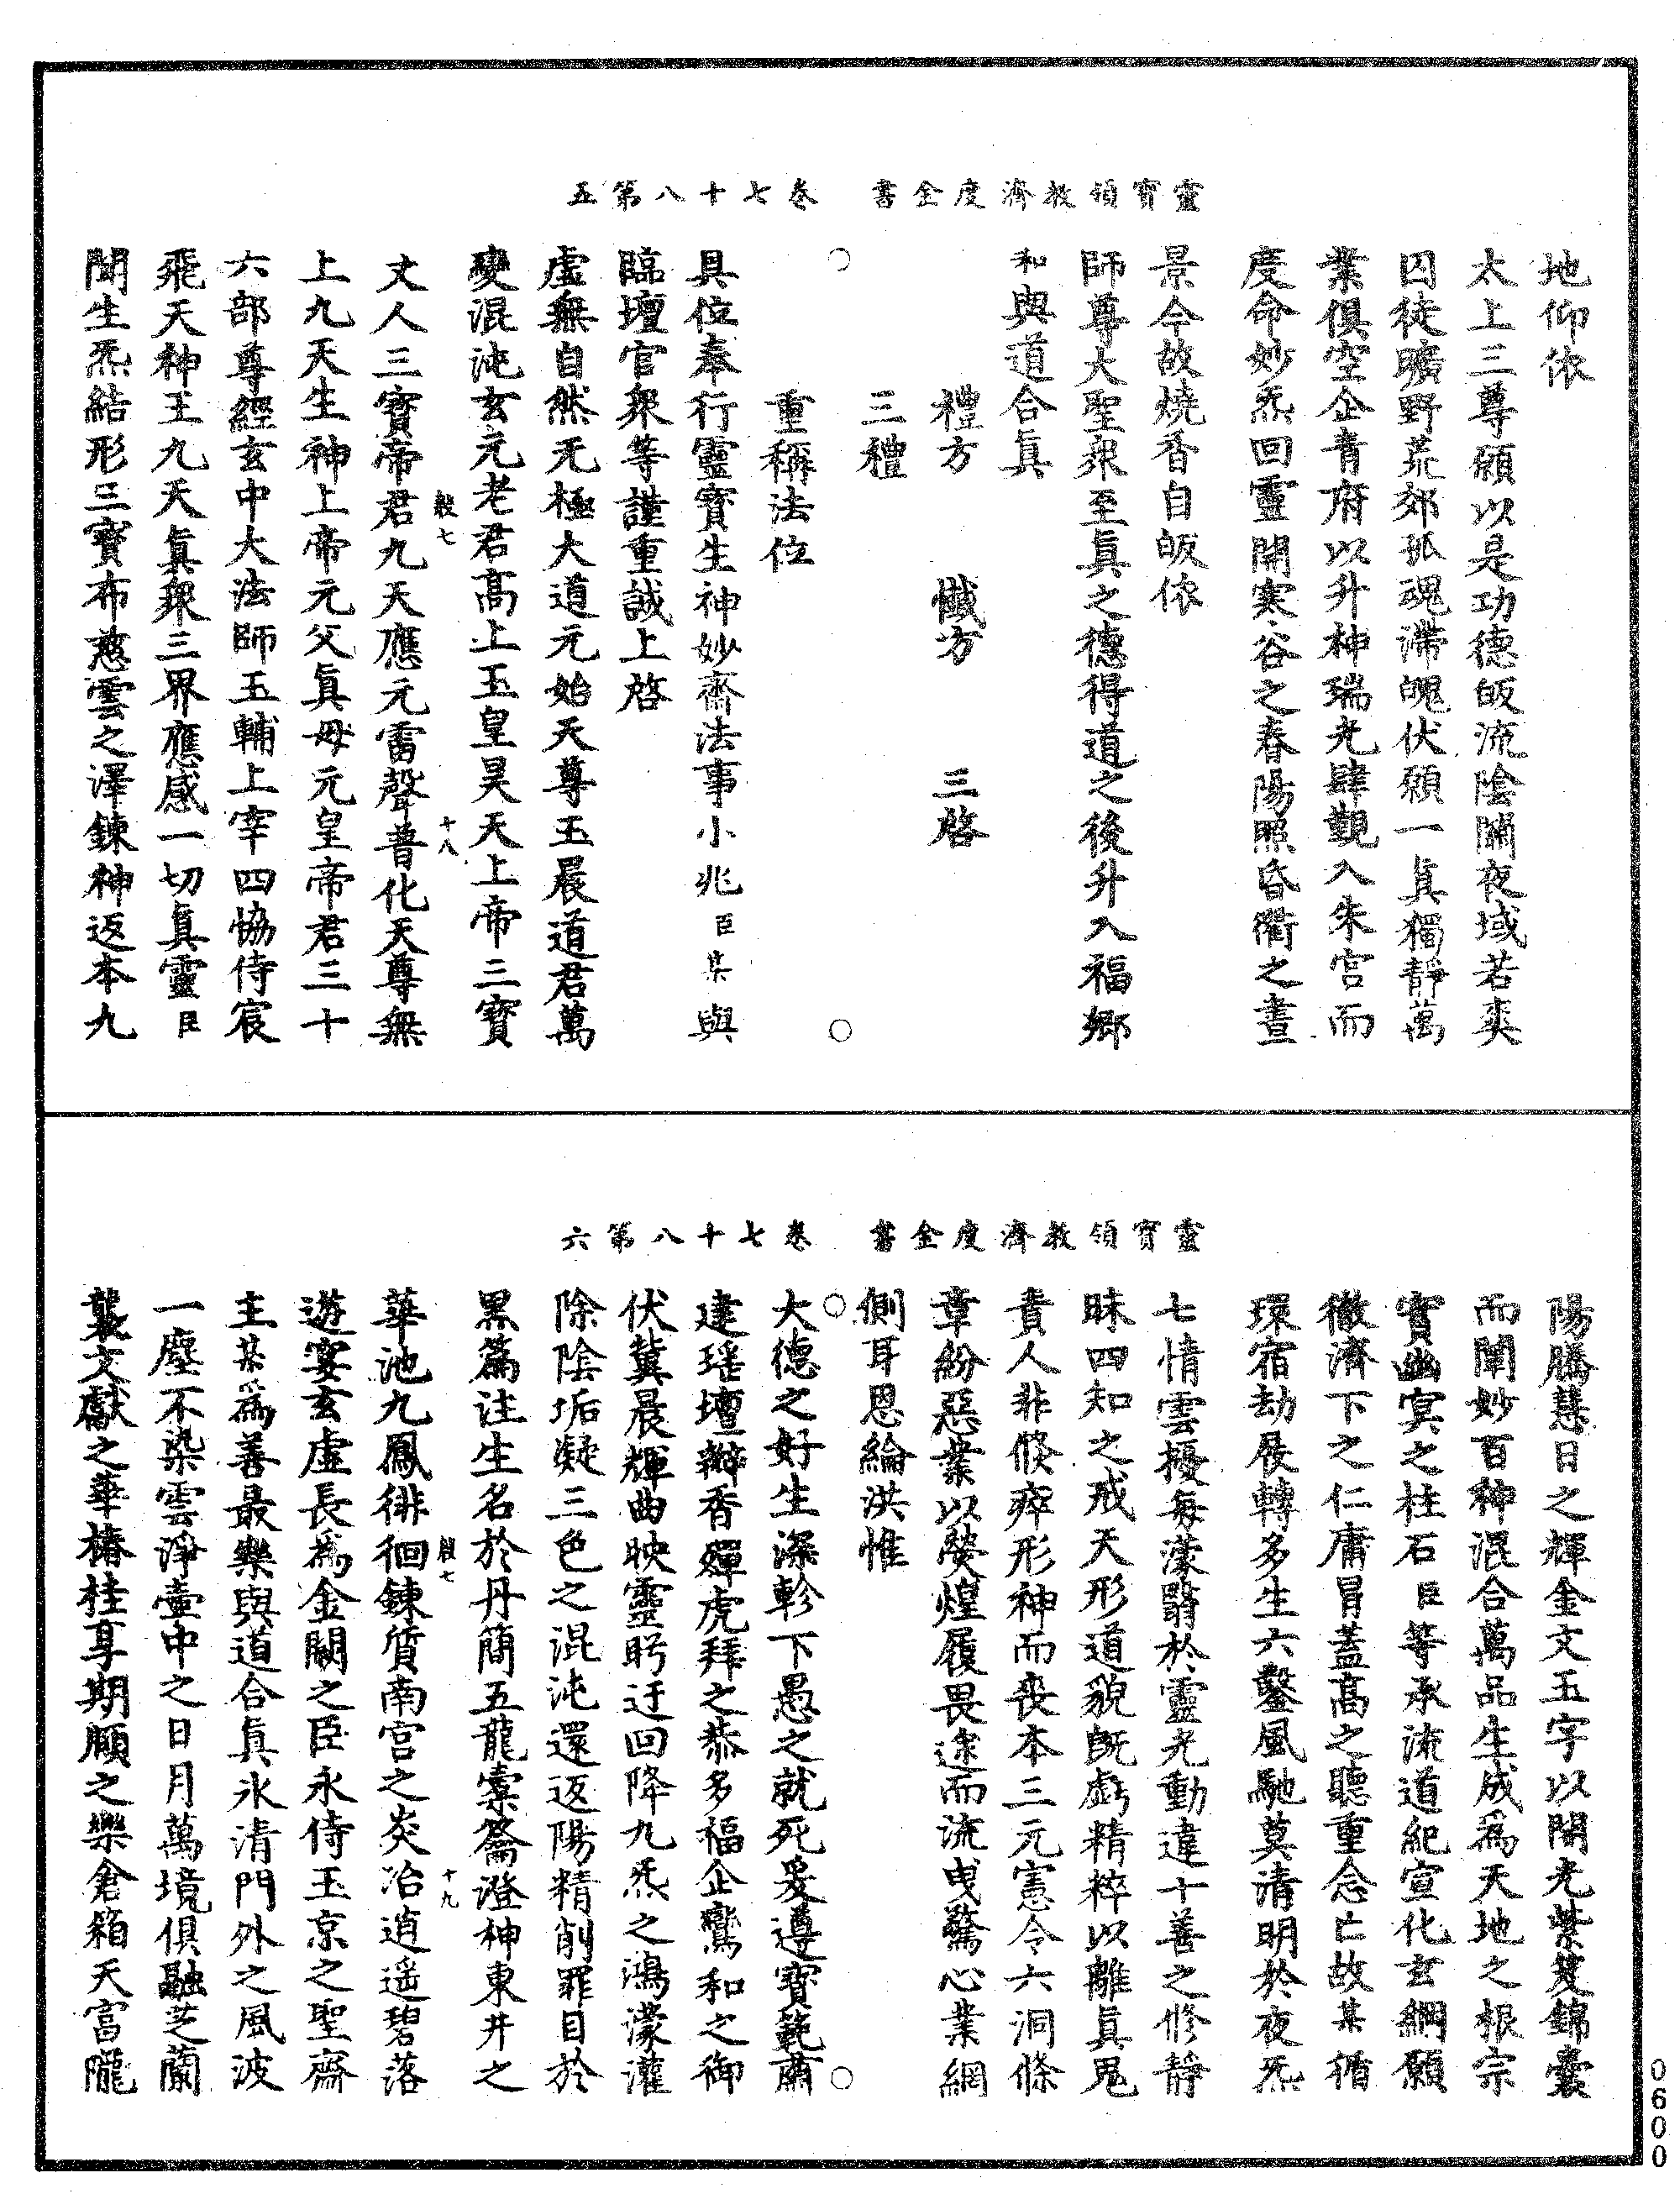 靈寶領教濟度金書　卷七十八第五
地仰依
太上三尊願以是功德皈流陰關夜域若爽
囚徒曠野荒郊孤魂滯魄伏願一眞獨靜萬
業俱空企青府以升神瑞光肆覲入朱宮而
度命妙炁回靈開寒谷之春陽照昏衢之晝
景今故燒香自皈依
師尊大聖衆至眞之德得道之後升入福鄉
和與道合眞
禮方　懺方　三啓
三禮
○　○
重稱法位
具位奉行靈寶生神妙齋法事小兆臣某與
臨壇官衆等謹重誠上啓
虛無自然无極大道元始天尊玉晨道君萬
變混沌玄元老君高上玉皇昊天上帝三寶
丈人三寶帝君九天應元雷聲普化天尊無
上九天生神上帝元父眞母元皇帝君三十
六部尊經玄中大法師五輔上宰四協侍宸
飛天神王九天眞衆三界應感一切眞靈臣
聞生炁結形三寶布慈雲之澤鍊神返本九
七　十八
靈寶領教濟度金書　卷七十八第六
陽騰慧日之輝金文玉字以開光紫笈錦囊
而闡妙百神混合萬品生成爲天地之根宗
寶幽冥之柱石臣等承流道紀宣化玄綱願
徹濟下之仁庸冒蓋高之聽重念亡故某循
環宿劫展轉多生六鑿風馳莫清明於夜炁
七情雲擾每濛翳於靈光動違十善之修靜
昧四知之戒天形道貌旣虧精粹以離眞鬼
責人非倐瘁形神而喪本三元憲令六洞條
章紛惡業以熒煌履畏途而流曳驚心業網
側耳恩綸洪惟
○　○
大德之好生深軫下愚之就死爰遵寶範肅
建瑤壇瓣香殫虎拜之恭多福企鸞和之御
伏冀晨輝曲映靈眄迂回降九炁之鴻濛灌
除陰垢凝三色之混沌還返陽精削罪目於
黑篇注生名於丹簡五龍橐籥澄神東井之
華池九鳳徘徊鍊質南宮之炎冶逍遥碧落
遊宴玄虛長爲金闕之臣永侍玉京之聖齋
主某爲善最樂與道合眞氷清門外之風波
一塵不染雲淨壺中之日月萬境俱融芝蘭
襲文獻之華椿桂享期頤之樂倉箱天富隴
七　十九
0600